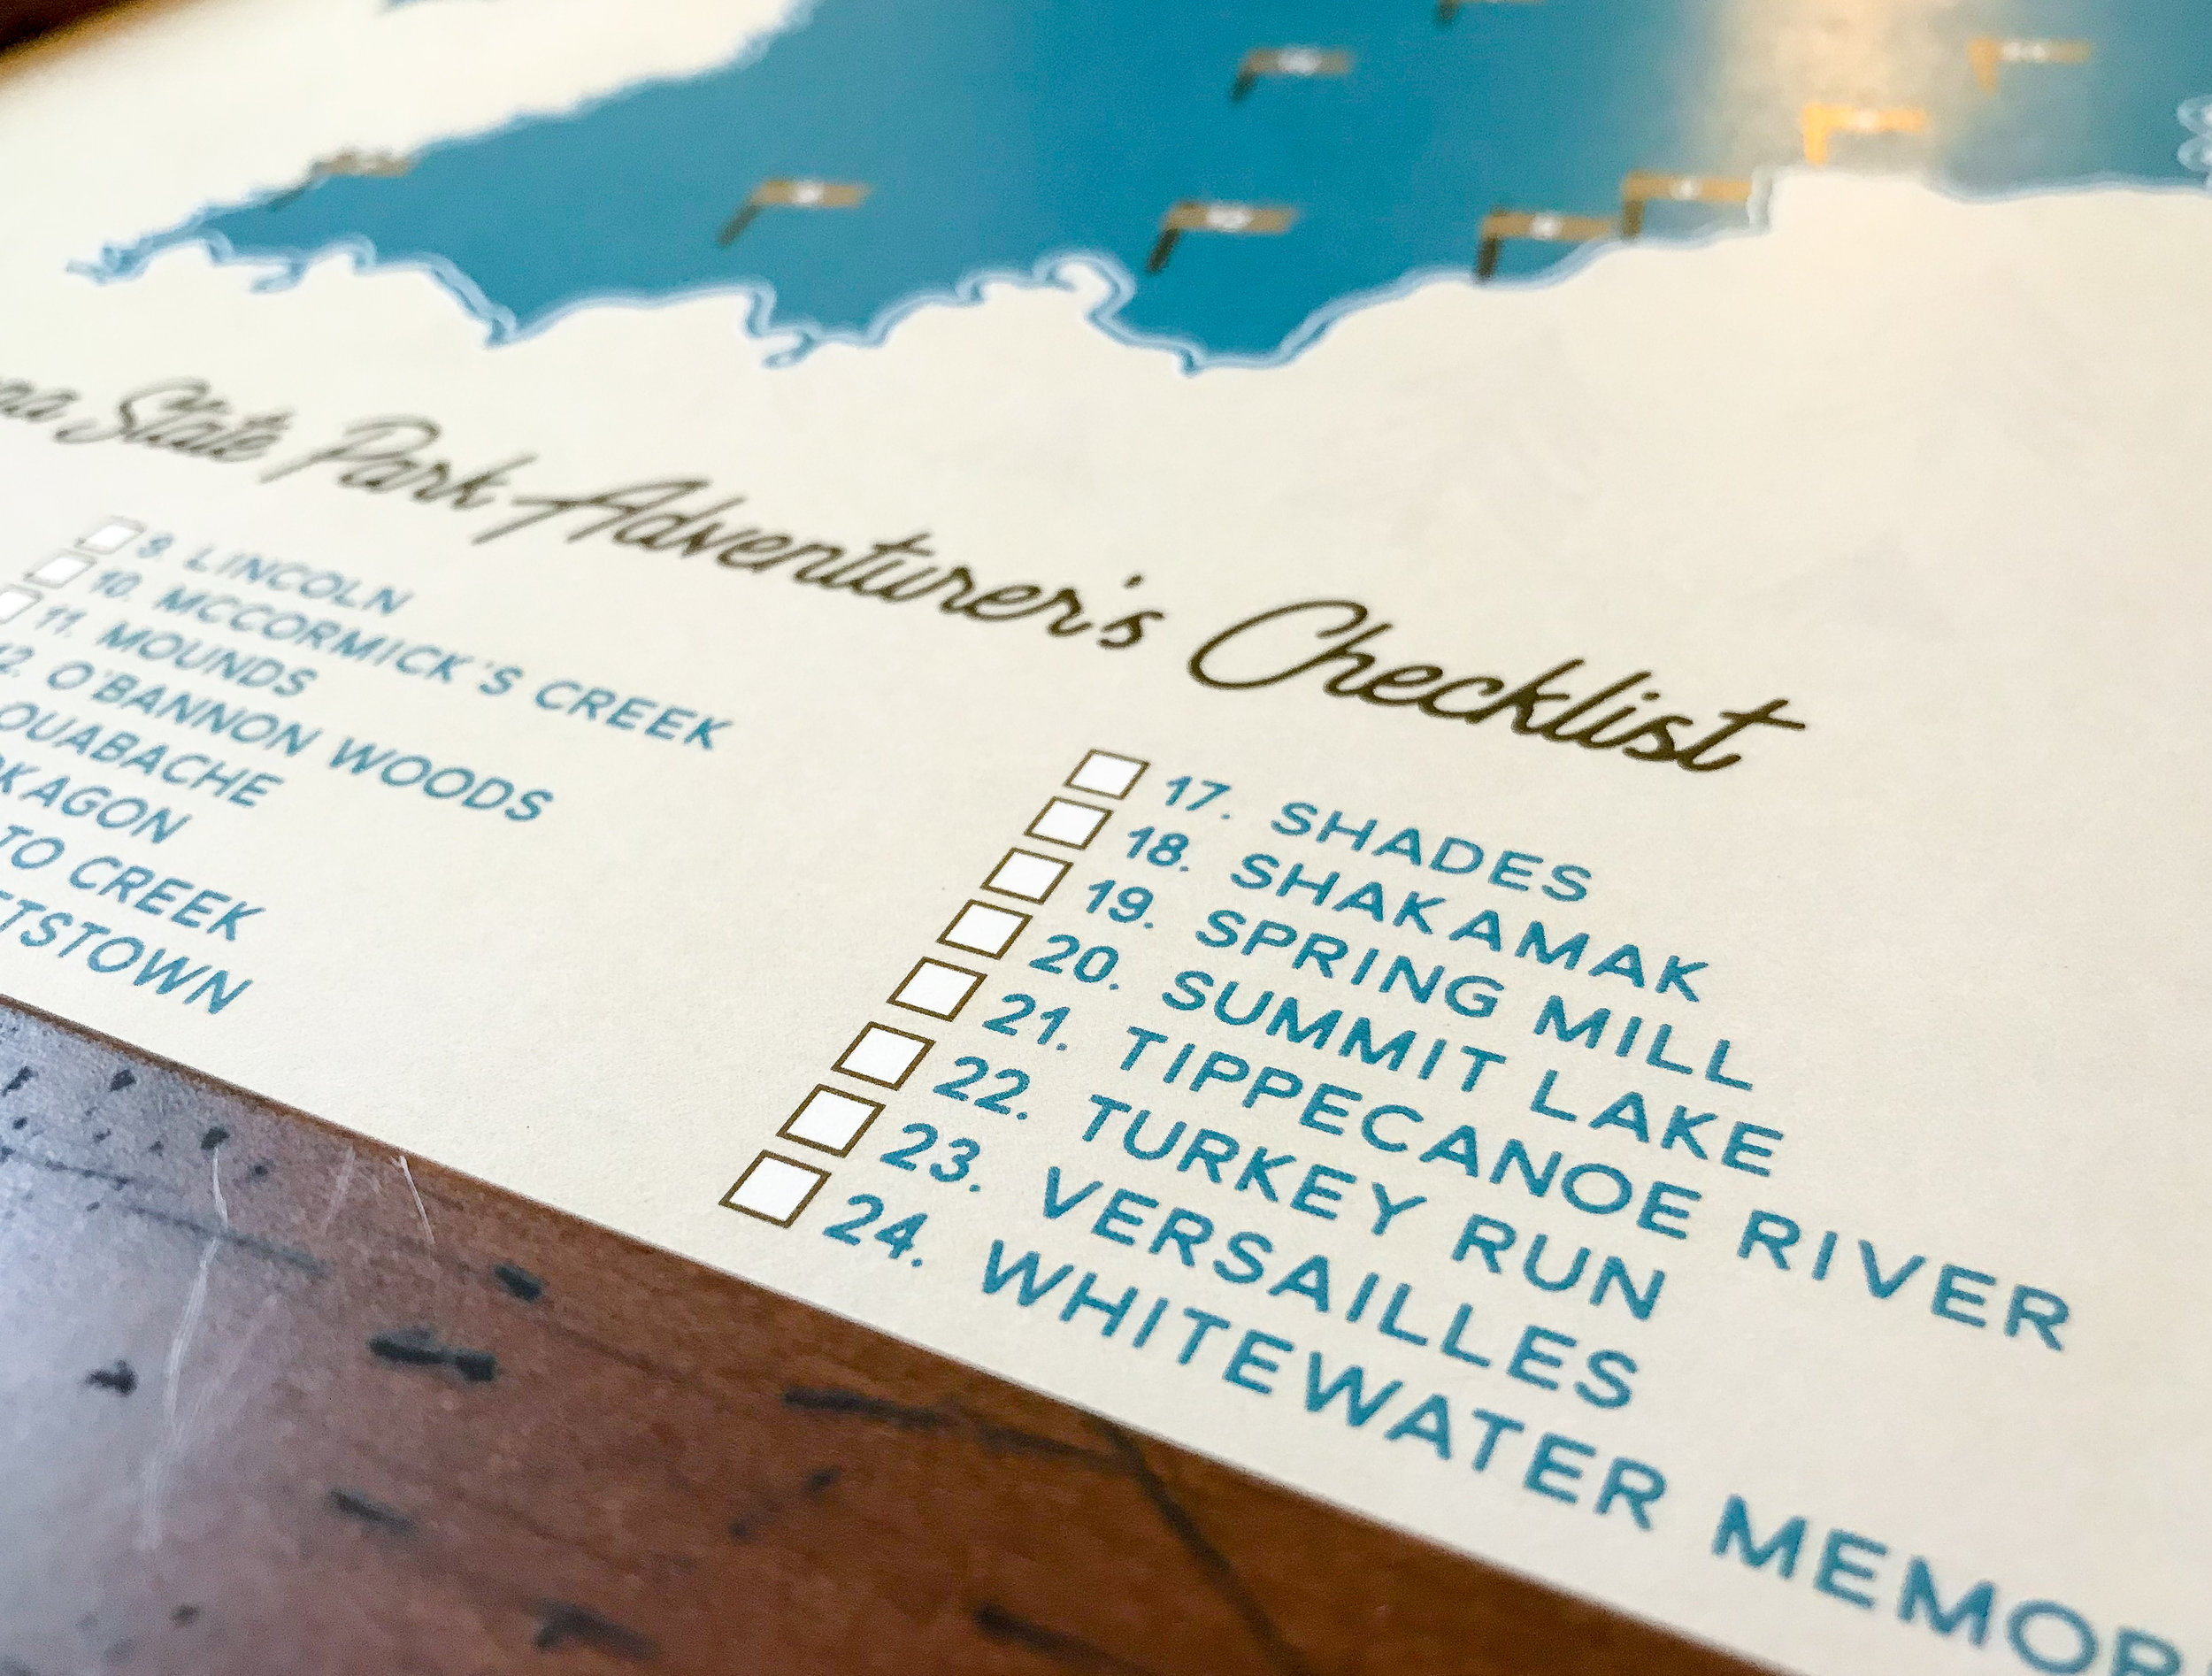 na State Park Adventurer's Checklist
9. LINCOLN
10. MCCORMICK'S CREEK
11. MOUNDS
12. O'BANNON WOODS
OUABACHE
KAGON
TO CREEK
TSTOWN
17. SHADES
18. SHAKAMAK
19. SPRING MILL
20. SUMMIT LAKE
21. TIPPECANOE RIVER
22. TURKEY RUN
23. VERSAILLES
24. WHITEWATER MEMOR